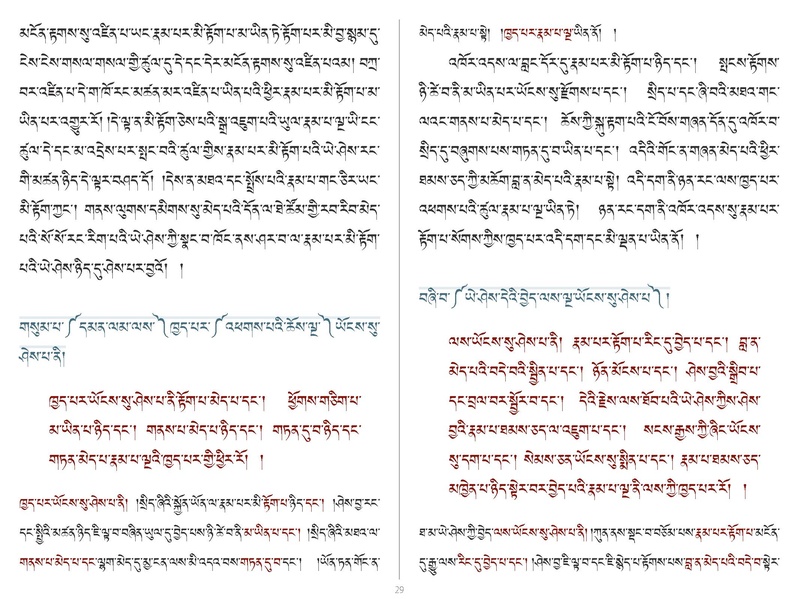 མངོན་རྟགས་སུ་འཛིན་པ་ཡང་རྣམ་པར་མི་རྟོག་པ་མ་ཡིན་ཏེ་རྟོག་པར་མི་བྱ་སྙམ་དུ་
ངེས་ངེས་གསལ་གསལ་གྱི་ཚུལ་དུ་དེ་དང་དེར་མངོན་རྟགས་སུ་འཛིན་པའམ། བཀྲ་
བར་འཛིན་པ་དེ་ག་ཁོ་རང་མཚན་མར་འཛིན་པ་ཡིན་པའི་ཕྱིར་རྣམ་པར་མི་རྟོག་པ་མ་
ཡིན་པར་འགྱུར་རོ། །དེ་ལྟ་ན་མི་རྟོག་ཅེས་པའི་སྒྲ་འཇུག་པའི་ཡུལ་རྣམ་པ་ལྔ་ཡི་ངང་
ཚུལ་དེ་དང་མ་འདྲེས་པར་སྤང་བའི་ཚུལ་གྱིས་རྣམ་པར་མི་རྟོག་པའི་ཡེ་ཤེས་རང་
གི་མཚན་ཉིད་དེ་ལྟར་བཤད་དོ། །དེས་ན་མཐའ་དང་སྤྲོས་པའི་རྣམ་པ་གང་ཅིར་ཡང་
མི་རྟོག་ཀྱང་། གནས་ལུགས་དམིགས་སུ་མེད་པའི་དོན་ལ་ཐེ་ཚོམ་གྱི་རབ་རིབ་མེད་
པའི་སོ་སོ་རང་རིག་པའི་ཡེ་ཤེས་ཀྱི་སྣང་བ་ཁོང་ནས་ཤར་བ་ལ་རྣམ་པར་མི་རྟོག་
པའི་ཡེ་ཤེས་ཉིད་དུ་ཤེས་པར་བྱའོ། །
གསུམ་པ་༼དམན་ལམ་ལས་༽ཁྱད་པར་༼འཕགས་པའི་ཆོས་ལྔ་༽ཡོངས་སུ་
ཤེས་པ་ནི།
ཁྱད་པར་ཡོངས་སུ་ཤེས་པ་ནི་རྟོག་པ་མེད་པ་དང་། ཕྱོགས་གཅིག་པ་
མ་ཡིན་པ་ཉིད་དང་། གནས་པ་མེད་པ་ཉིད་དང་། གཏན་དུ་བ་ཉིད་དང་
གཏན་མེད་པ་རྣམ་པ་ལྔའི་ཁྱད་པར་གྱི་ཕྱིར་རོ། །
ཁྱད་པར་ཡོངས་སུ་ཤེས་པ་ནི། །སྲིད་ཞིའི་སྐྱོན་ཡོན་ལ་རྣམ་པར་མི་རྟོག་པ་ཉིད་དང་། །ཤེས་བྱ་རང་
དང་སྤྱིའི་མཚན་ཉིད་ཇི་ལྟ་བ་བཞིན་ཡུལ་དུ་བྱེད་པས་ཉི་ཚེ་བ་ནི་མ་ཡིན་པ་དང་། །སྲིད་ཞིའི་མཐའ་ལ་
གནས་པ་མེད་པ་དང་ལྷག་མེད་དུ་མྱ་ངན་ལས་མི་འདའ་བས་གཏན་དུ་བ་དང་། །ཡོན་ཏན་གོང་ན་
མེད་པའི་རྣམ་པ་སྟེ། །ཁྱད་པར་རྣམ་པ་ལྔ་ཡིན་ནོ། །
འཁོར་འདས་ལ་བླང་དོར་དུ་རྣམ་པར་མི་རྟོག་པ་ཉིད་དང་། སྤངས་རྟོགས་
ཉི་ཚེ་བ་ནི་མ་ཡིན་པར་ཡོངས་སུ་རྫོགས་པ་དང་། སྲིད་པ་དང་ཞི་བའི་མཐའ་གང་
ལའང་གནས་པ་མེད་པ་དང་། ཆོས་ཀྱི་སྐུ་རྟག་པའི་ངོ་བོས་གཞན་དོན་དུ་འཁོར་བ་
སྲིད་དུ་བཞུགས་པས་གཏན་དུ་བ་ཡིན་པ་དང་། འདིའི་གོང་ན་གཞན་མེད་པའི་ཕྱིར་
ཐམས་ཅད་ཀྱི་མཆོག་བླ་ན་མེད་པའི་རྣམ་པ་སྟེ། འདི་དག་ནི་ཉན་རང་ལས་ཁྱད་པར་
འཕགས་པའི་ཚུལ་རྣམ་པ་ལྔ་ཡིན་ཏེ། ཉན་རང་དག་ནི་འཁོར་འདས་སུ་རྣམ་པར་
རྟོག་པ་སོགས་ཀྱིས་ཁྱད་པར་འདི་དག་དང་མི་ལྡན་པ་ཡིན་ནོ། །
བཞི་བ་༼ཡེ་ཤེས་དེའི་བྱེད་ལས་ལྔ་ཡོངས་སུ་ཤེས་པ་༽།
ལས་ཡོངས་སུ་ཤེས་པ་ནི། རྣམ་པར་རྟོག་པ་རིང་དུ་བྱེད་པ་དང་། བླ་ན་
མེད་པའི་བདེ་བའི་སྦྱིན་པ་དང་། ཉོན་མོངས་པ་དང་། ཤེས་བྱའི་སྒྲིབ་པ་
དང་བྲལ་བར་སྦྱོར་བ་དང་། དེའི་རྗེས་ལས་ཐོབ་པའི་ཡེ་ཤེས་ཀྱིས་ཤེས་
བྱའི་རྣམ་པ་ཐམས་ཅད་ལ་འཇུག་པ་དང་། སངས་རྒྱས་ཀྱི་ཞིང་ཡོངས་
སུ་དག་པ་དང་། སེམས་ཅན་ཡོངས་སུ་སྨིན་པ་དང་། རྣམ་པ་ཐམས་ཅད་
མཁྱེན་པ་ཉིད་སྟེར་བར་བྱེད་པའི་རྣམ་པ་ལྔ་ནི་ལས་ཀྱི་ཁྱད་པར་རོ། །
ཐ་མ་ཡེ་ཤེས་ཀྱི་བྱེད་ལས་ཡོངས་སུ་ཤེས་པ་ནི། །ཀུན་ནས་སྡང་བ་བཅོམ་པས་རྣམ་པར་རྟོག་པ་མངོན་
དུ་རྒྱུ་ལས་རིང་དུ་བྱེད་པ་དང་། །ཤེས་བྱ་ཇི་ལྟ་བ་དང་ཇི་སྙེད་པ་རྟོགས་པས་བླ་ན་མེད་པའི་བདེ་བ་སྟེར་
29